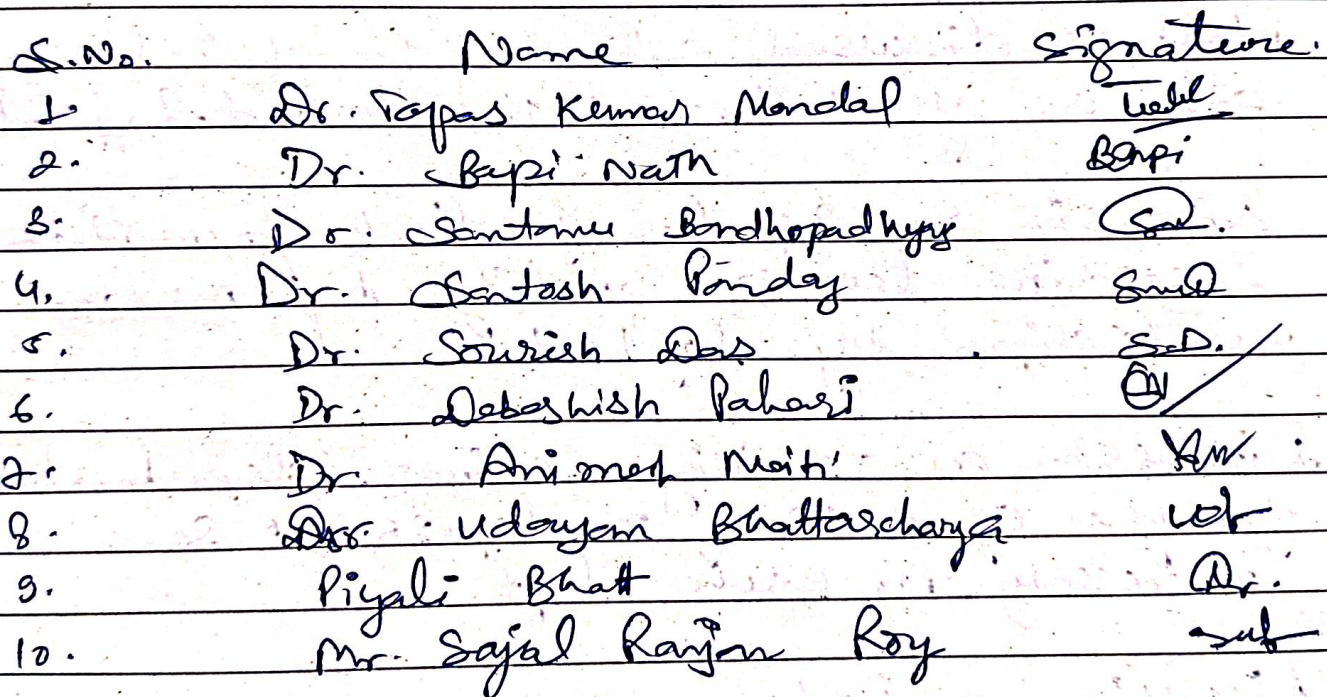 S.No. Name Signature.
1. Dr. Tappas Kumar Mondal
2. Dr. Bapi Nath Bapi
3. Dr. Santanu Bandhopadhyay
4. Dr. Santosh Panday
5. Dr. Sourish Das S.D.
6. Dr. Debashish Pahari
7. Dr. Animesh Maiti
8. Dr. Udayan Bhattacharya
9. Piyali Bhatt Dr.
10. Mr. Sajal Ranjan Roy